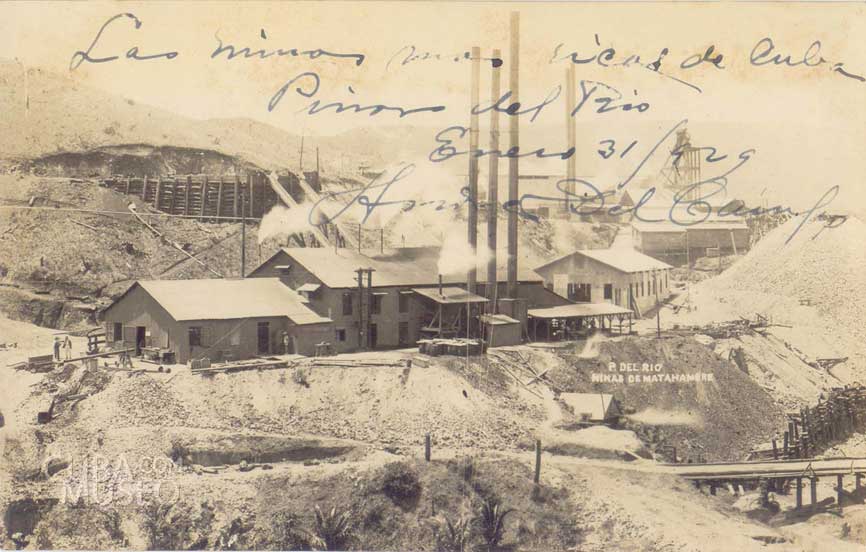 Las Minas mas ricas de Cuba
Pinar del Rio
Enero 31/929
Del Campo
P. DEL RIO
MINAS DE MATAHAMBRE
CUBA.com
MUSEO